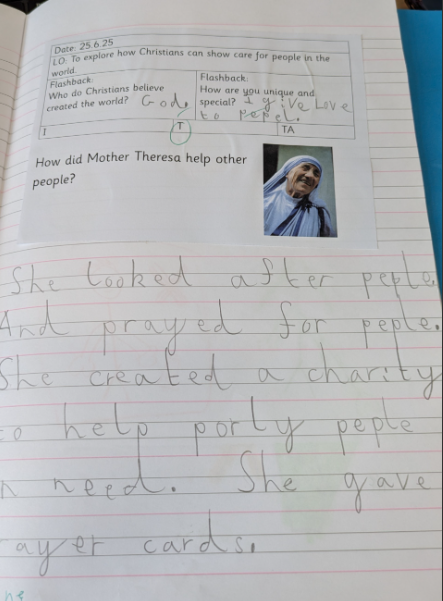 Date: 25.6.25
LO: To explore how Christians can show care for people in the
world.
Flashback:
Who do Christians believe
created the world? God.
Flashback:
How are you unique and
special? I give Love
to pepel.
I T TA
How did Mother Theresa help other
people?
She looked after peple
And prayed for peple.
She created a charity
to help porly peple
n need. She gave
ayer cards.
he